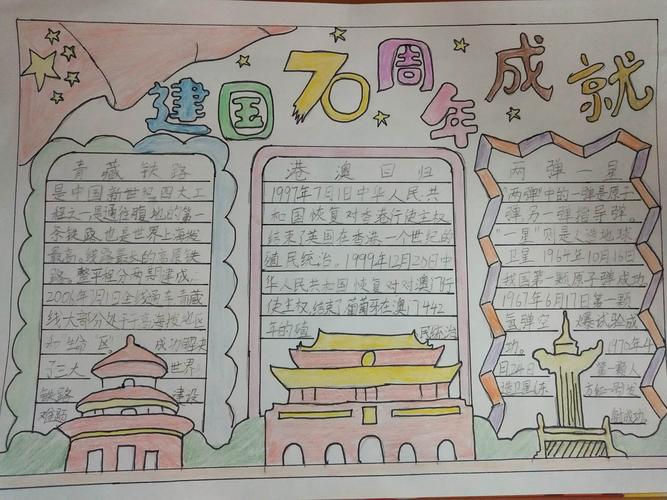 建国70周年成就
青藏铁路
是中国新世纪四大工
程之一是通往藏地的第一
条铁路也是世界上海拔
最高、线路最长的高原铁
路 整平程分两期建成,
2006年7月1日全线通车青藏
线大部分处于于高海拔地区
和"
区". 成功解决
了三大 世界
铁路 建设
难题
港澳回归
1997年7月1日中华人民共
和国恢复对香港行使主权
结束了英国在香港一个世纪的
殖民统治。1999年12月26日中
华人民共和国恢复对对澳门行
使主权,结束了葡萄牙在澳门442
年的殖 民统治
两弹一星
"两弹"中的一弹是原子
弹另一弹指导弹。
"一星"则是人造地球
卫星 1964年10月16日
我国第一颗原子弹成功
1967年6月17日第一颗
氢弹空 爆试验成
功。 1970年4
月24日 第一颗人
造卫星东 方红一号发
射成功.